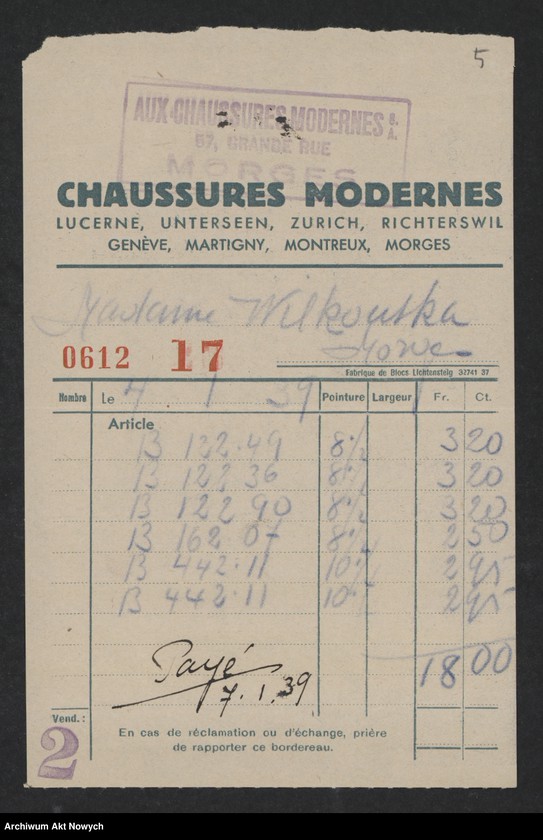 5
AUX CHAUSSURES MODERNES S.A.
57, GRANDE RUE
MORGES
CHAUSSURES MODERNES
LUCERNE, UNTERSEEN, ZURICH, RICHTERSWIL
GENÈVE, MARTIGNY, MONTREUX, MORGES
Madame Wilkonska
0612 17
Fabrique de Blocs Lichtensteig 32741 37
Nombre Le 4 1 39 Pointure Largeur Fr. Ct.
Article
B 122.49 8½ 3 20
B 122 36 8½ 3 20
B 122 90 8½ 3 20
B 162 07 8½ 2 50
B 442.11 10½ 2 95
B 442.11 10½ 2 95
18 00
Payé
7.1.39
Vend.:
2
En cas de réclamation ou d'échange, prière
de rapporter ce bordereau.
Archiwum Akt Nowych